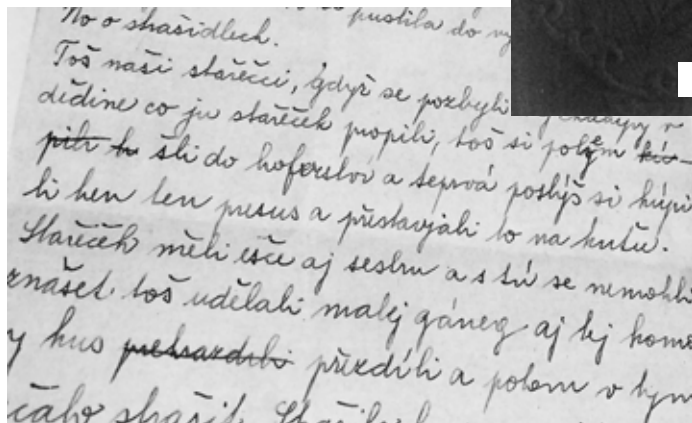 pustila do
No o strašidlech.
Toš naši stařéčci, gdyž se pozbyli v
dědine co ju stařéček propili, toš si potem
šli do hoferstvi a teprvá poslýš si kúpi
li hen ten presus a přestavjali to na kutu.
Stařéček měli ešče aj sestru a s tú se nemohli
znášet. toš udělali malej gáneg aj tej
hus přezdili a potem v tym
strašit.